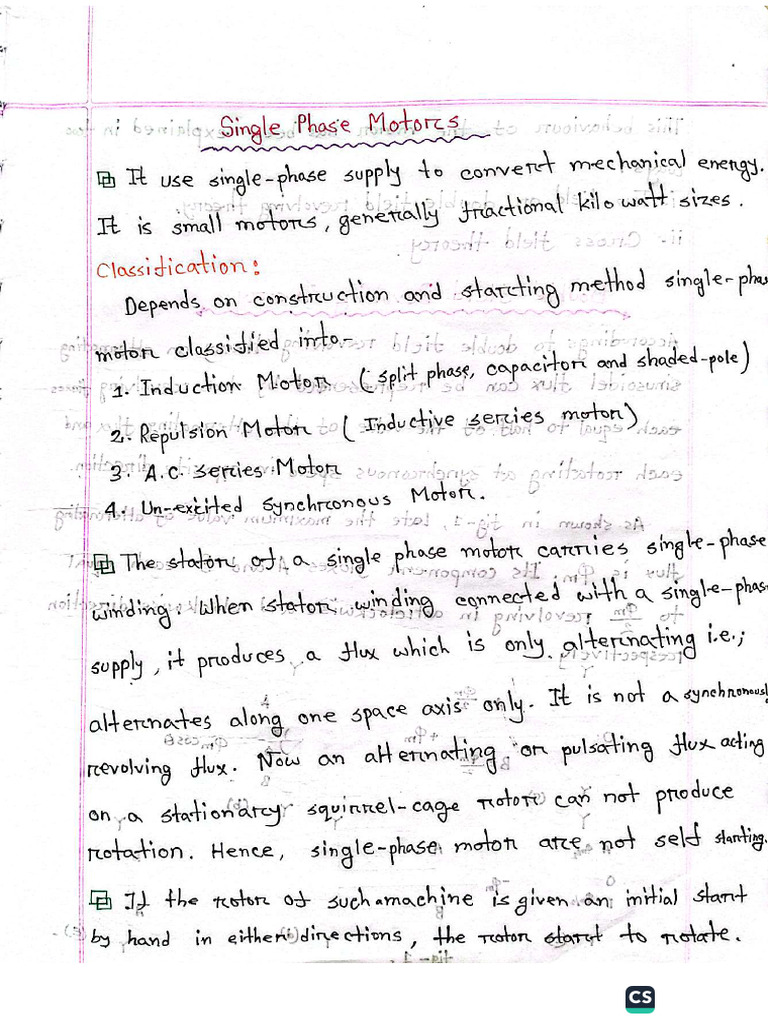 Single Phase Motors
It use single-phase supply to convert mechanical energy.
It is small motors, generally fractional kilo watt sizes.
Classification:
Depends on construction and starting method single-phas
motor classified into-
1. Induction Motor (split phase, capacitor and shaded-pole)
2. Repulsion Motor (Inductive series motor)
3. A.C. series Motor
4. Un-excited Synchronous Motor.
The stator of a single phase motor carries single-phase
winding. When stator winding connected with a single-phas
supply, it produces a flux which is only alternating i.e.;
alternates along one space axis only. It is not a synchronously
revolving flux. Now an alternating or pulsating flux acting
on a stationary squirrel-cage rotor can not produce
rotation. Hence, single-phase motor are not self starting.
If the rotor of such a machine is given an initial start
by hand in either directions, the rotor start to rotate.
CS